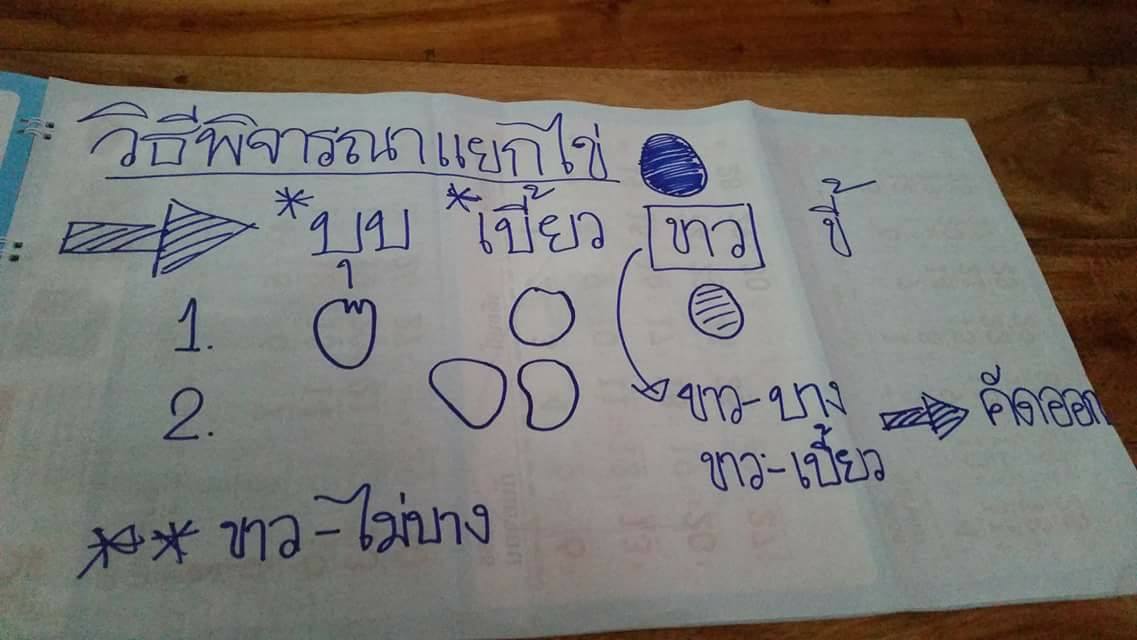 วิธีพิจารณาแยกไข่
*บุบ *เบี้ยว ขาว ขี้
1.
2.
ขาว-บาง คัดออก
ขาว-เบี้ยว
** ขาว-ไม่บาง